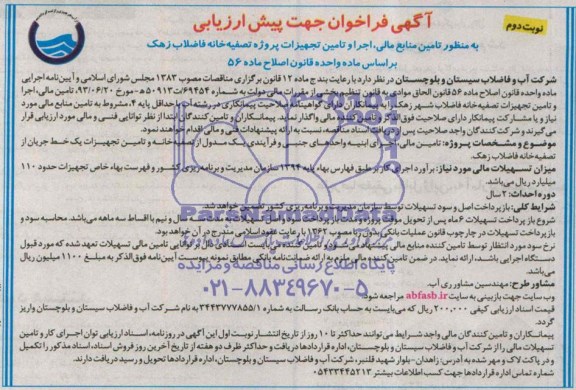 نوبت دوم
آگهی فراخوان جهت پیش ارزیابی
به منظور تامین منابع مالی، اجرا و تامین تجهیزات پروژه تصفیه‌خانه فاضلاب زهک
براساس ماده واحده قانون اصلاح ماده ۵۶
شرکت آب و فاضلاب سیستان و بلوچستان در نظر دارد با رعایت بند ج ماده ۱۲ قانون برگزاری مناقصات مصوب ۱۳۸۳ مجلس شورای اسلامی و آیین‌نامه اجرایی
ماده واحده قانون اصلاح ماده ۵۶ قانون الحاق موادی به قانون تنظیم بخشی از مقررات مالی دولت به شماره ۶۹۴۵۴/ت۵۰۹۱۳هـ مورخ ۹۳/۰۶/۲۰، تامین مالی، اجرا
و تامین تجهیزات تصفیه‌خانه فاضلاب شهر زهک را به پیمانکاران دارای گواهینامه صلاحیت پیمانکاری در رشته آب با حداقل پایه ۴، مشروط به تامین منابع مالی مورد
نیاز و یا مشارکت پیمانکار دارای صلاحیت فوق الذکر و تامین کننده مالی واگذار نماید. پیمانکاران و تامین کنندگان ابتدا از نظر توانایی فنی و مالی مورد ارزیابی قرار
می گیرند و شرکت کنندگان واجد صلاحیت پس از دریافت اسناد مناقصه، نسبت به ارائه پیشنهادات فنی و مالی اقدام خواهند نمود.
موضوع و مشخصات پروژه: تامین مالی، اجرای ابنیه واحدهای جنبی و فرآیندی یک مدول از تصفیه خانه و تامین تجهیزات یک خط جریان از
تصفیه خانه فاضلاب زهک.
میزان تسهیلات مالی مورد نیاز: برآورد اجرای کار بر طبق فهارس بهاء پایه ۱۳۹۴ سازمان مدیریت و برنامه ریزی کشور و فهرست بهاء خاص تجهیزات حدود ۱۱۰
میلیارد ریال می‌باشد.
دوره احداث: ۲ سال
شرایط کلی: بازپرداخت اصل و سود تسهیلات توسط سازمان مدیریت و برنامه ریزی کشور تضمین خواهد شد.
شروع باز پرداخت تسهیلات ۶ ماه پس از تحویل موقت پروژه و نیم با اقساط سه ماهه می باشد. محاسبه سود و
بازپرداخت تسهیلات در چارچوب قانون عملیات بانکی بدون ربا مصوب ۱۳۶۲ با رعایت عقود اسلامی مندرج در آن خواهد بود.
نرخ سود مورد انتظار توسط تامین کننده منابع مالی پیشنهاد می شود و تامین کننده مالی تسهیلات تعهد شده که مورد قبول
دستگاه اجرایی باشد، ارائه نماید. در ضمن تامین کننده مالی ملزم به ارائه ضمانت‌نامه بانکی مطابق نمونه پیوست آیین‌نامه فوق الذکر به مبلغ ۱۱۰۰ میلیون ریال
می باشد.
مشاور طرح: مهندسین مشاور ری آب.
وب سایت جهت بازبینی به سایت abfasb.ir مراجعه شود.
قیمت اسناد ارزیابی کیفی ۲۰۰,۰۰۰ ریال که می‌بایست به حساب بانک رسالت به شماره ۳۴۴۳۷۷۷۸۵۵/۱ به نام شرکت آب و فاضلاب سیستان و بلوچستان واریز
گردد.
پیمانکاران و تامین کنندگان مالی واجد شرایط می توانند حداکثر تا ۱۰ روز از تاریخ انتشار نوبت اول این آگهی در روزنامه، اسناد ارزیابی توان اجرای کار و تامین
تسهیلات مالی را از شرکت آب و فاضلاب سیستان و بلوچستان، اداره قراردادها دریافت و حداکثر ظرف دو هفته از تاریخ آخرین روز فروش اسناد، اسناد مذکور را تکمیل
و در پاکت لاک و مهر شده به آدرس: زاهدان- بلوار شهید قلنبر، شرکت آب و فاضلاب سیستان و بلوچستان، اداره قراردادها تحویل و رسید دریافت دارند.
شماره تماس اداره قراردادها جهت کسب اطلاعات بیشتر ۰۵۴۳۳۴۴۵۲۱۳
ParsNamadData
پایگاه اطلاع رسانی مناقصه و مزایده
۰۲۱-۸۸۳۴۹۶۷۰-۵